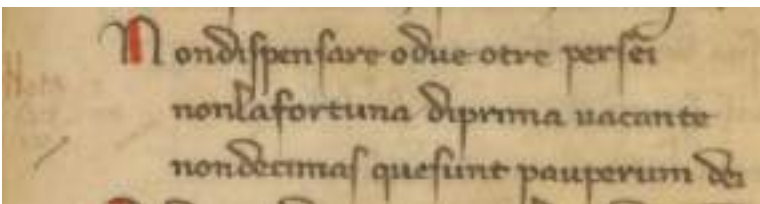 Non dispensare o due o tre per sei
non la fortuna di prima uacante
non decimas que sunt pauperum dei